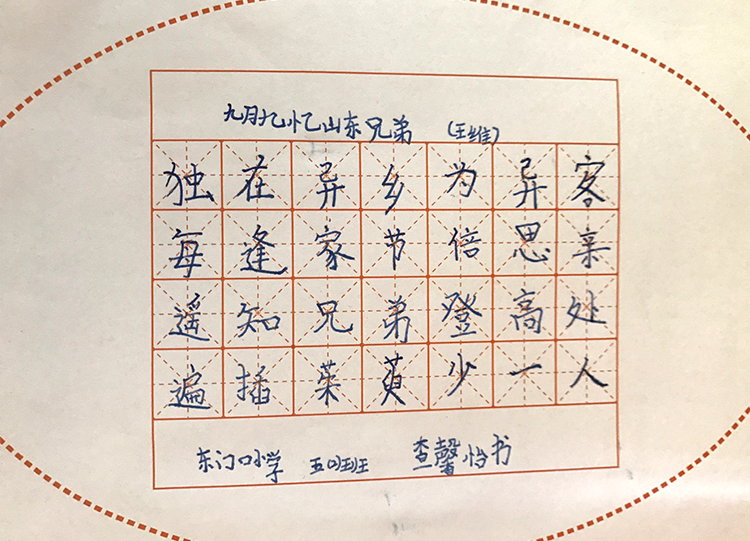 九月九忆山东兄弟 (王维)
独在异乡为异客
每逢家节倍思亲
遥知兄弟登高处
遍插茱萸少一人
东门口小学 五(1)班 查馨怡书